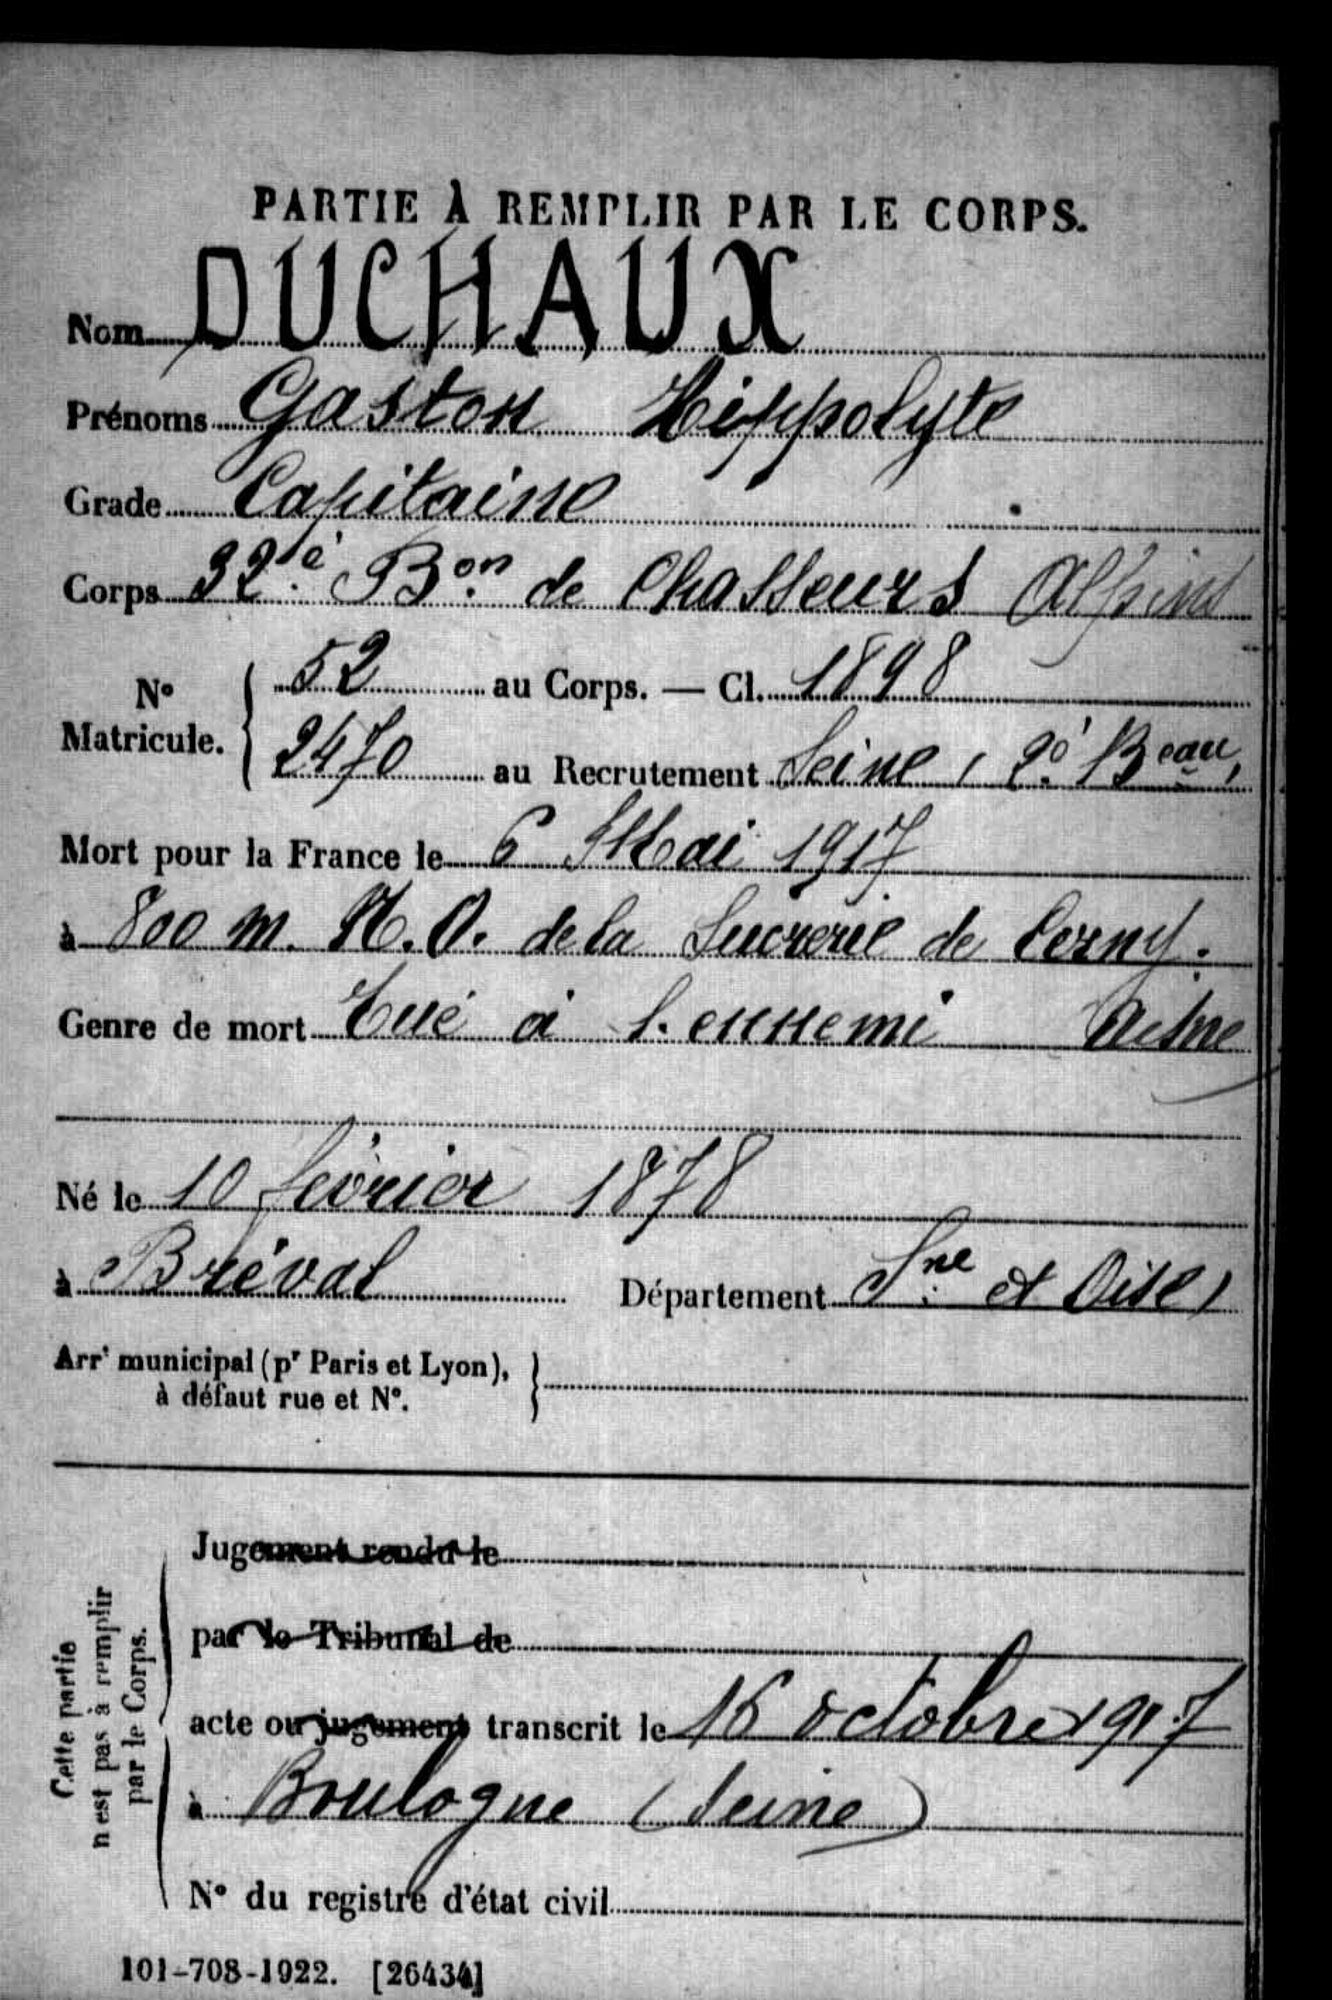 PARTIE À REMPLIR PAR LE CORPS.
Nom DUCHAUX
Prénoms Gaston Hippolyte
Grade Capitaine
Corps 32.è B.on de Chasseurs Alpins
N° Matricule. { 52 au Corps. — Cl. 1898
2470 au Recrutement Seine, 2.è Beau,
Mort pour la France le 6 Mai 1917
à 800 m. N.O. de la Sucrerie de Cerny.
Genre de mort Tué à l'ennemi Aisne
Né le 10 février 1878
à Bréval Département S.ne et Oise,
Arrt municipal (pr Paris et Lyon),
à défaut rue et N°. }
Cette partie
n'est pas à remplir
par le Corps.
Jugement rendu le
par le Tribunal de
acte ou jugement transcrit le 16 octobre 1917
à Boulogne (Seine)
N° du registre d'état civil
101-708-1922. [26434]